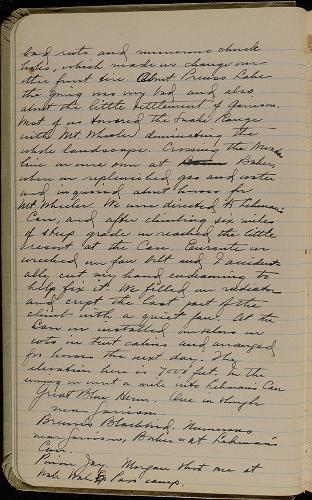 bad ruts and numerous chuck
holes, which made us change our
other front tire. About Preuss Lake
the going was very bad and also
about the little settlement of Garrison.
West of us towered the Snake Range
with Mt Wheeler dominating the
whole landscape. Crossing the Nevada
line we were soon at Baker,
where we replenished gas and water
and inquired about horses for
Mt Wheeler. We were directed to Lehman's
Cave, and after climbing six miles
of steep grade we reached the little
resort at the Cave. Enroute we
wrecked our fan belt and I accident-
ally cut my hand endeavoring to
help fix it. We filled our radiator
and crept the last part of the
climb with a quiet fan. At the
Cave we installed ourselves on
cots in tent cabins and arranged
for horses the next day. The
elevation here is 7000 feet. In the
evening we went a mile into Lehman's Cave
Great Blue Heron. One in slough
near Garrison.
Brewers Blackbird. Numerous
near Garrison, Baker & at Lehman's
Cave.
Pinon Jay. Morgan shot one at
Wah Wah Pass camp.